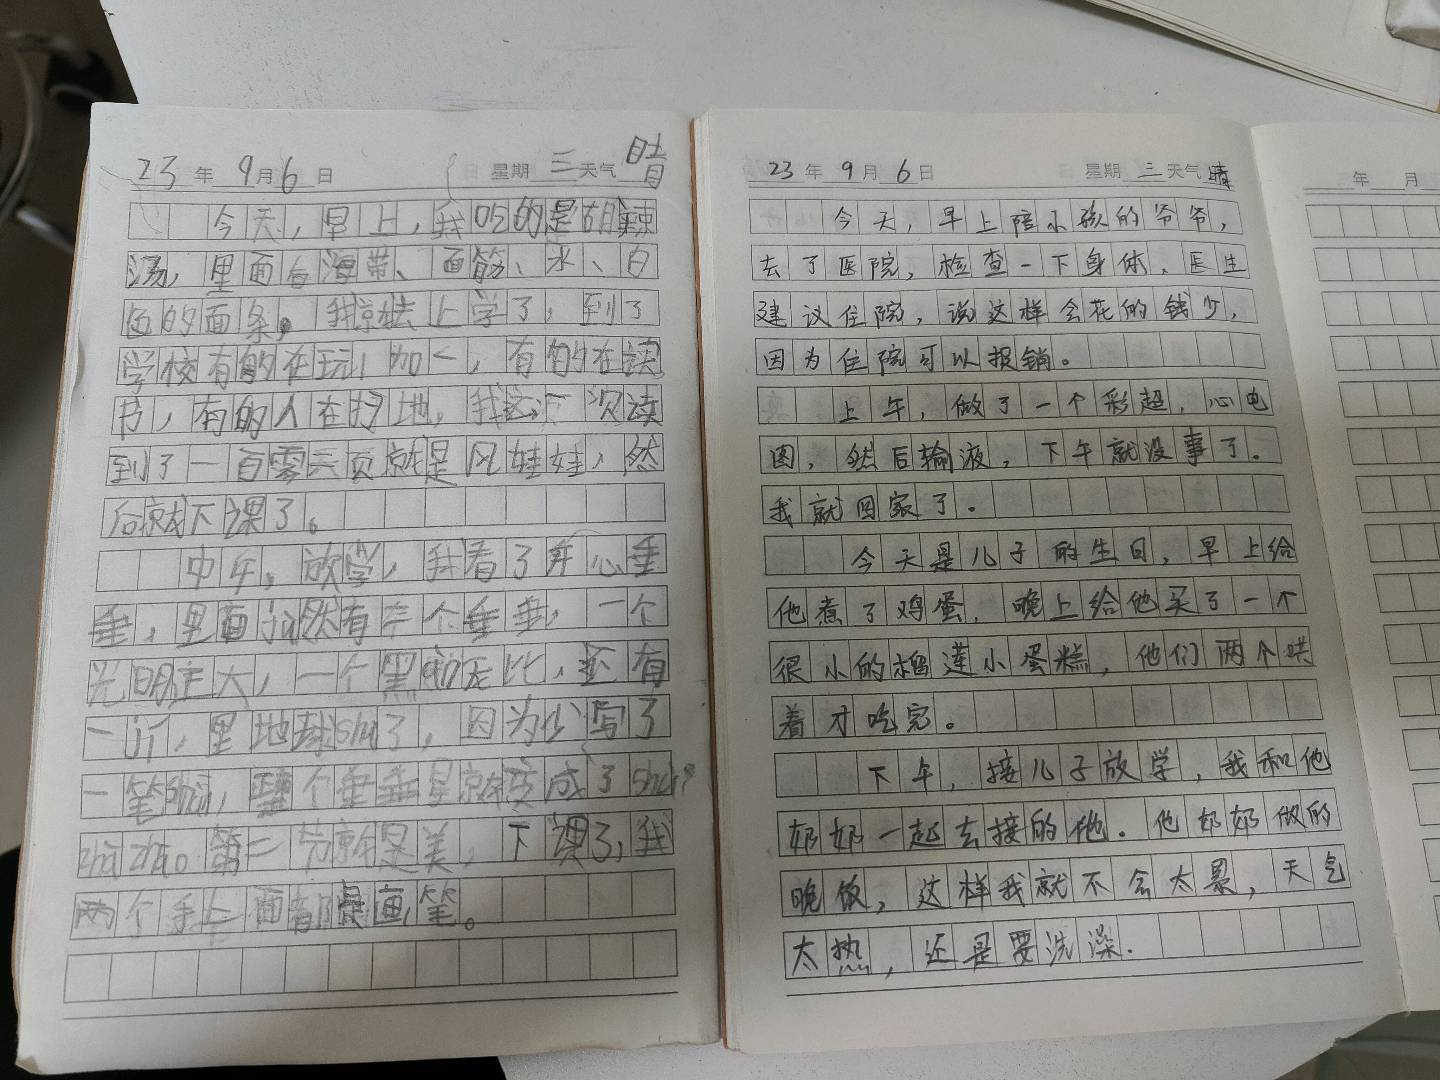 23年 9月6日 星期三 天气 晴
今天,早上,我吃的是胡辣
汤,里面有海带、面筋、水、白
色的面条。我就去上学了,到了
学校有的在玩,有的在读
书,有的人在扫地,我这一次读
到了一百零六页就是风娃娃,然
后就下课了。
中午,放学,我看了开心垂
垂,里面jū然有三个垂垂,一个
光明正大,一个黑无比,还有
一,里地球shū了,因为少写了
一笔,个垂垂星就变成了
zhāi zhāo。第二节就是美,下课了,我
两个手上面都是画笔。
23年 9月6日 星期三 天气 晴
今天,早上陪小孩的爷爷,
去了医院,检查一下身体,医生
建议住院,说这样会花的钱少,
因为住院可以报销。
上午,做了一个彩超,心电
图,然后输液,下午就没事了.
我就回家了。
今天是儿子的生日,早上给
他煮了鸡蛋,晚上给他买了一个
很小的榴莲小蛋糕,他们两个哄
着才吃完。
下午,接儿子放学,我和他
奶奶一起去接的他.他奶奶做的
晚饭,这样我就不会太累,天气
太热,还是要洗澡.
年 月